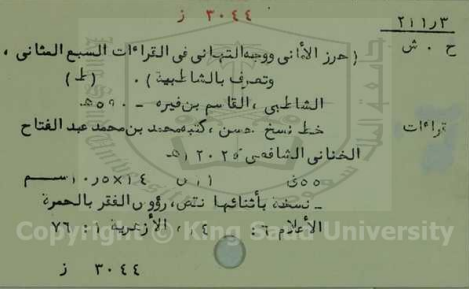 ٣٠٤٤ ز
٢١١٫٣
ح ٠ ش
( حرز الأماني ووجه التهاني في القراءات السبع المثاني ،
وتعرف بالشاطبية ) ٠ (ط)
الشاطبي ، القاسم بن فيره - ٥٩٠ هـ
قراءات
خط نسخ حسن ، كتبه محمد بن محمد عبد الفتاح
الخناني الشافعي ١٢٠٢ هـ
٥٥ق ٠ ١٤×١٠٫٥ سم
- نسخة بأثنائها نقص، رؤوس الفقر بالحمرة
الأعلام ٦: ١٤ ، الأزهرية ١: ٧٦
Copyright © King Saud University
٣٠٤٤ ز